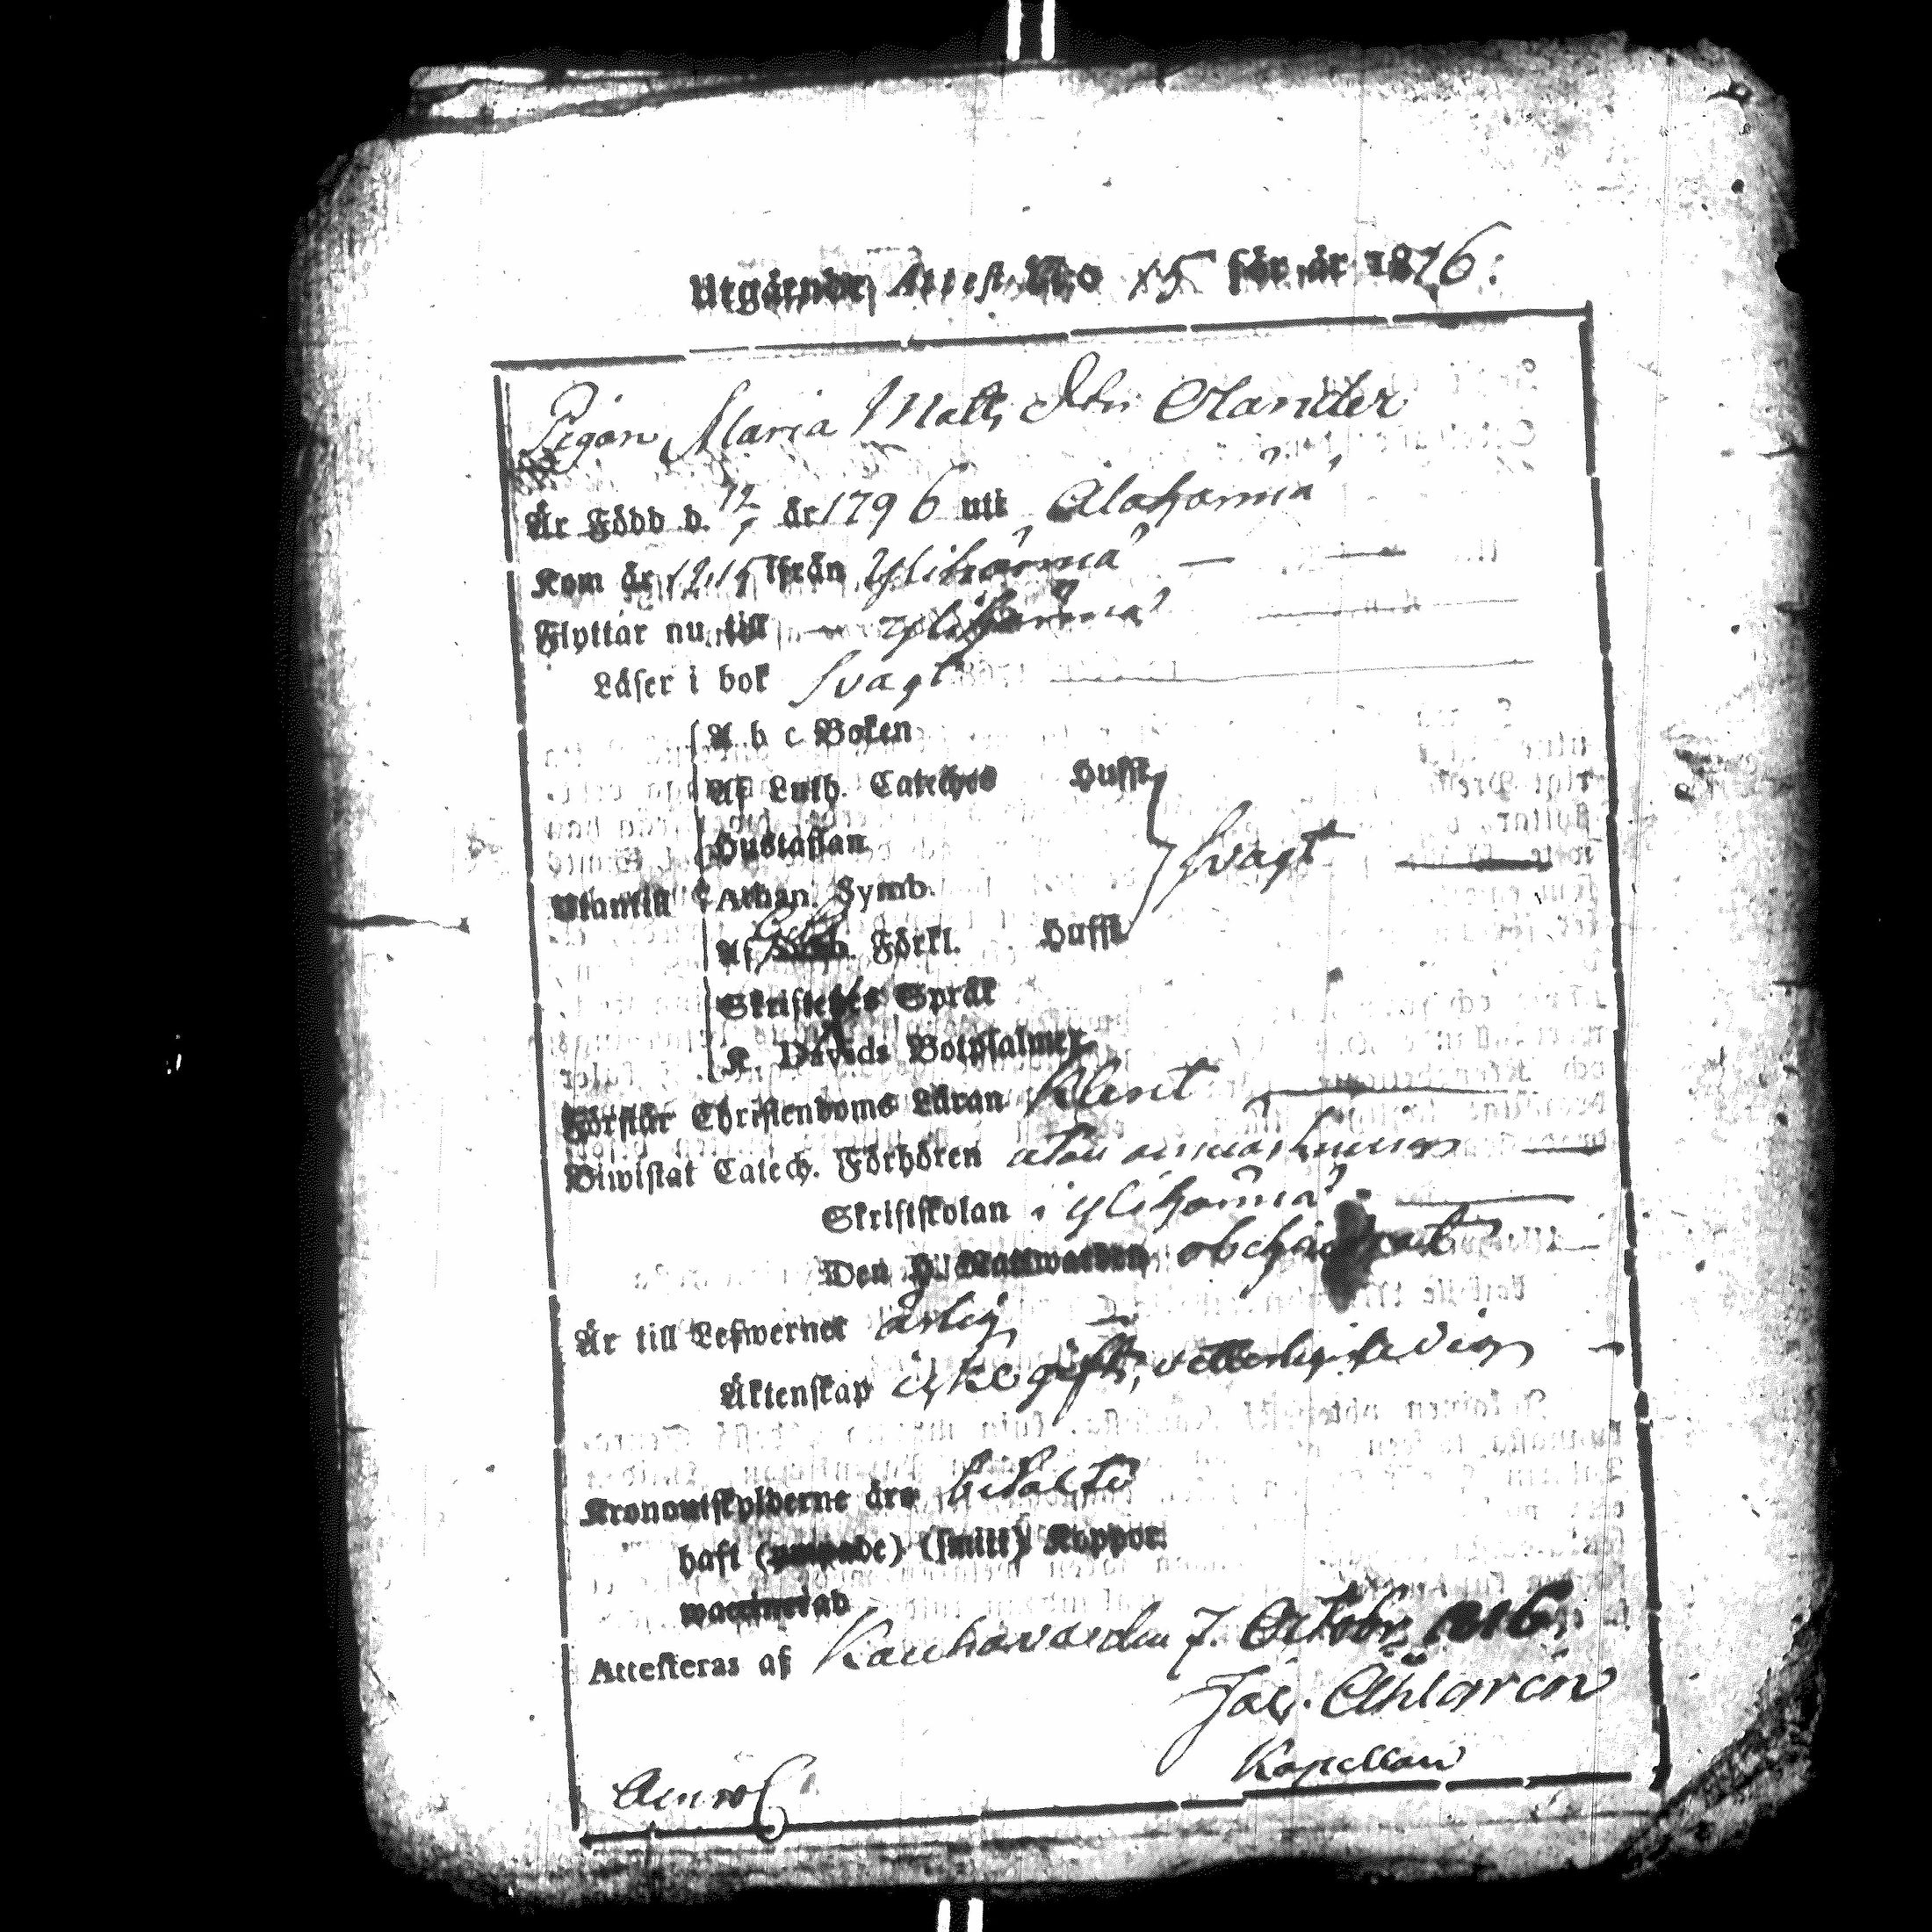 Utgående Attest No 15 för år 1816.
Pigan Maria Matts Dtr Olander
Är Född d. 12/7 år 1796 uti Alahärmä
Kom år 1215 ifrån Ylihärmä
Flyttar nu till Ylihärmä
Läser i bok svagt
A b c Boken
Af Luth. Catechés Hufst
Hustaflan
Utantill Athan. Symb. svagt
Af Förkl. Hufst
Skriftenes Språk
K. Davids Botpsalmer
Förstår Christendoms Läran klent
Biwistat Catech. Förhören
Skriftskolan i Ylihärmä
Den H. Nattwarden obehindrat
Är till Lefwernet ärlig
Äktenskap icke gift, vetterligen ledig
Kronoutskylderne äro betalte
haft (smitt) Koppor
waccinerad
Attesteras af Kauhava den 7. Octobr 1816.
Jac. Ahlgren
Kapellan